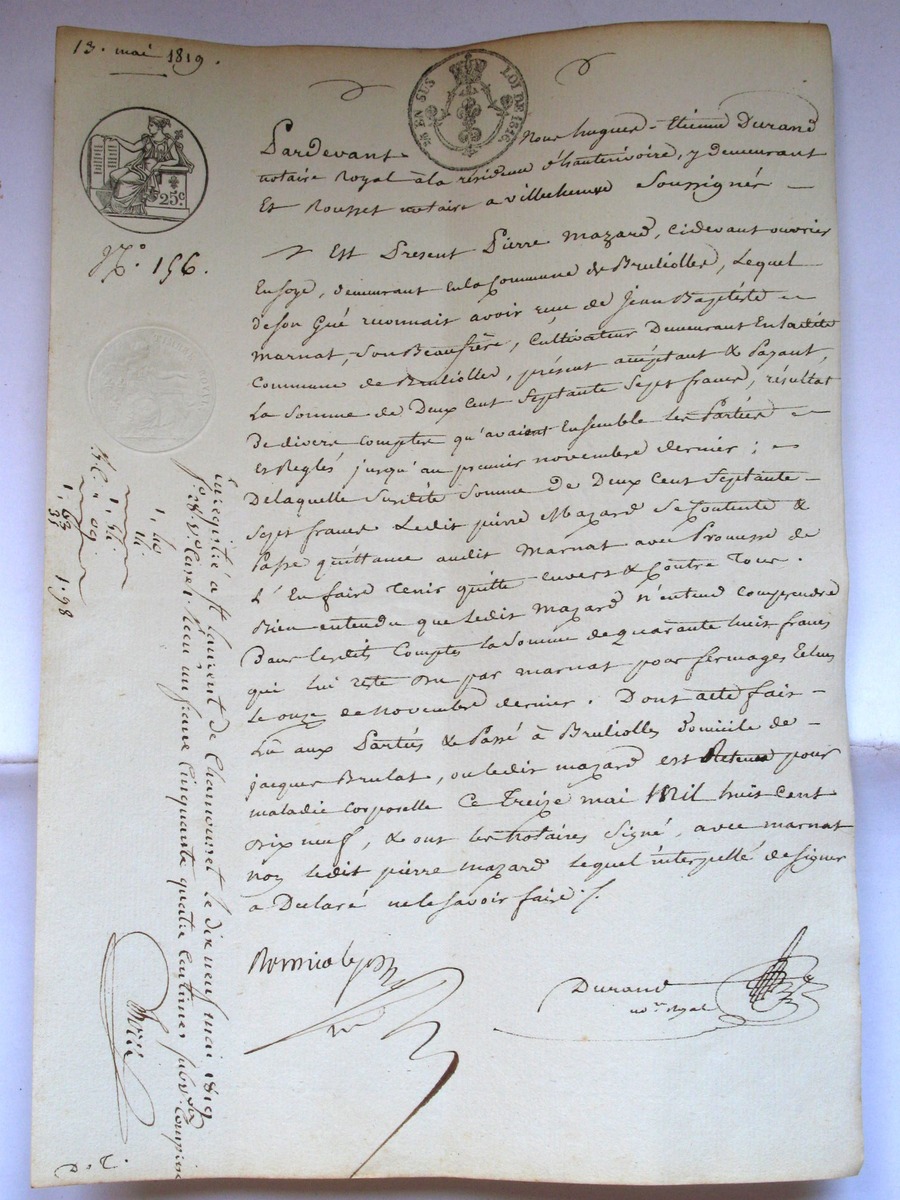 13. mai 1819.
EN SUS LOI DE 1816.
25c.
N.° 156.
Pardevant Nous hugues-Etienne Durand
notaire Royal à la résidence d'hauterivoire, y demeurant
Et Rousset notaire a villecheneve Soussignés
Est Present Pierre Mazard, cidevant ouvrier
En Soye, demeurant En la Commune de Brulliolles, Lequel
de son Gré reconnait avoir reçu de Jean Baptiste
Marnat, Son Beaufrère, Cultivateur Demeurant En ladite
Commune de Brulliolles, présent acceptant & Payant,
La Somme de Deux Cent Septante Sept francs, résultat
De divers comptes qu'avaient Ensemble les Parties
et Reglés jusqu'au premier novembre dernier;
De laquelle Susdite Somme de Deux Cent Septante
Sept francs Ledit pierre Mazard Se Contente &
Passe quittance audit Marnat avec Promesse de
L'En faire Tenir quitte envers & Contre Tous.
Bien entendu que Ledit Mazard n'entend Comprendre
Dans Lesdits Comptes la Somme de quarante huit francs
qui lui reste Du par marnat pour fermages Echus
Le onze de Novembre dernier. Dont acte fait
Lu aux Parties & Passé à Brulliolles domicile de
jacques Brulat, ou ledit mazard est Retenu pour
maladie Corporelle Ce Treize mai Mil huit Cent
Dix neuf, & ont les Notaires Signé, avec marnat
non ledit pierre mazard Lequel interpellé de Signer
a Déclaré ne le Savoir faire ./.
Durand
no.re Royal
Enregistré à St Laurent de Chamousset le dix neuf mai 1819
Reçu un franc Cinquante quatre Centimes
1, 98
D. T.